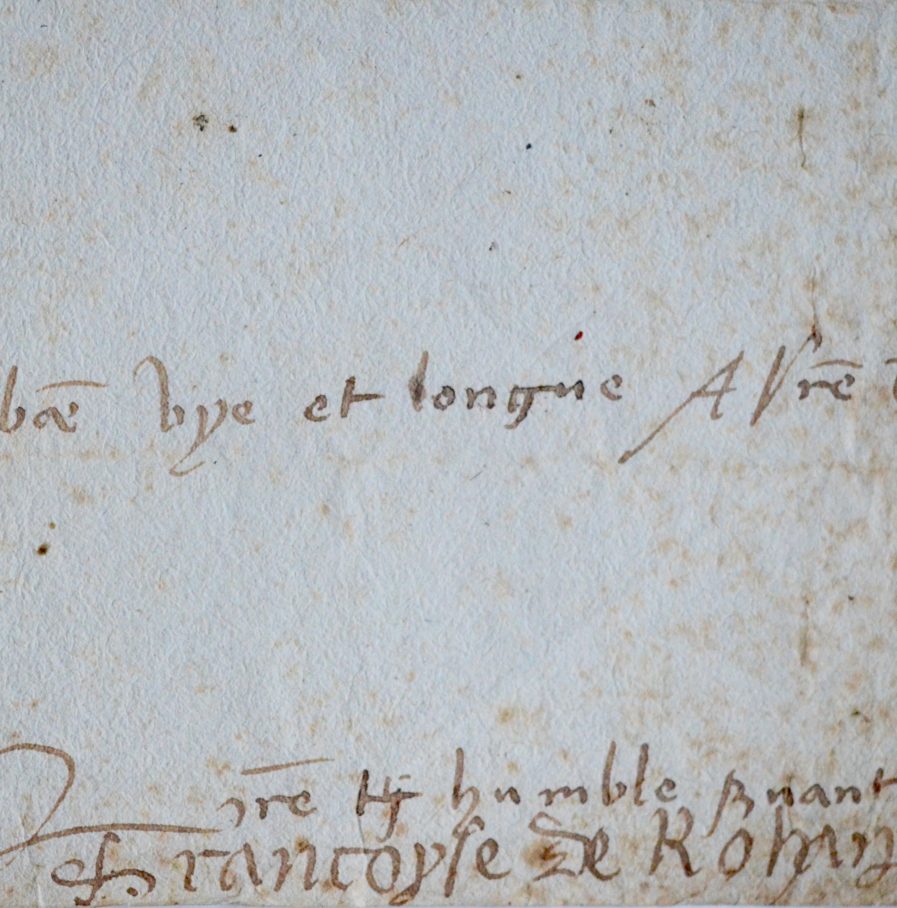 bõe vye et longue A Vr̃e
Vr̃e trs humble svant
Francoyse de Rohan